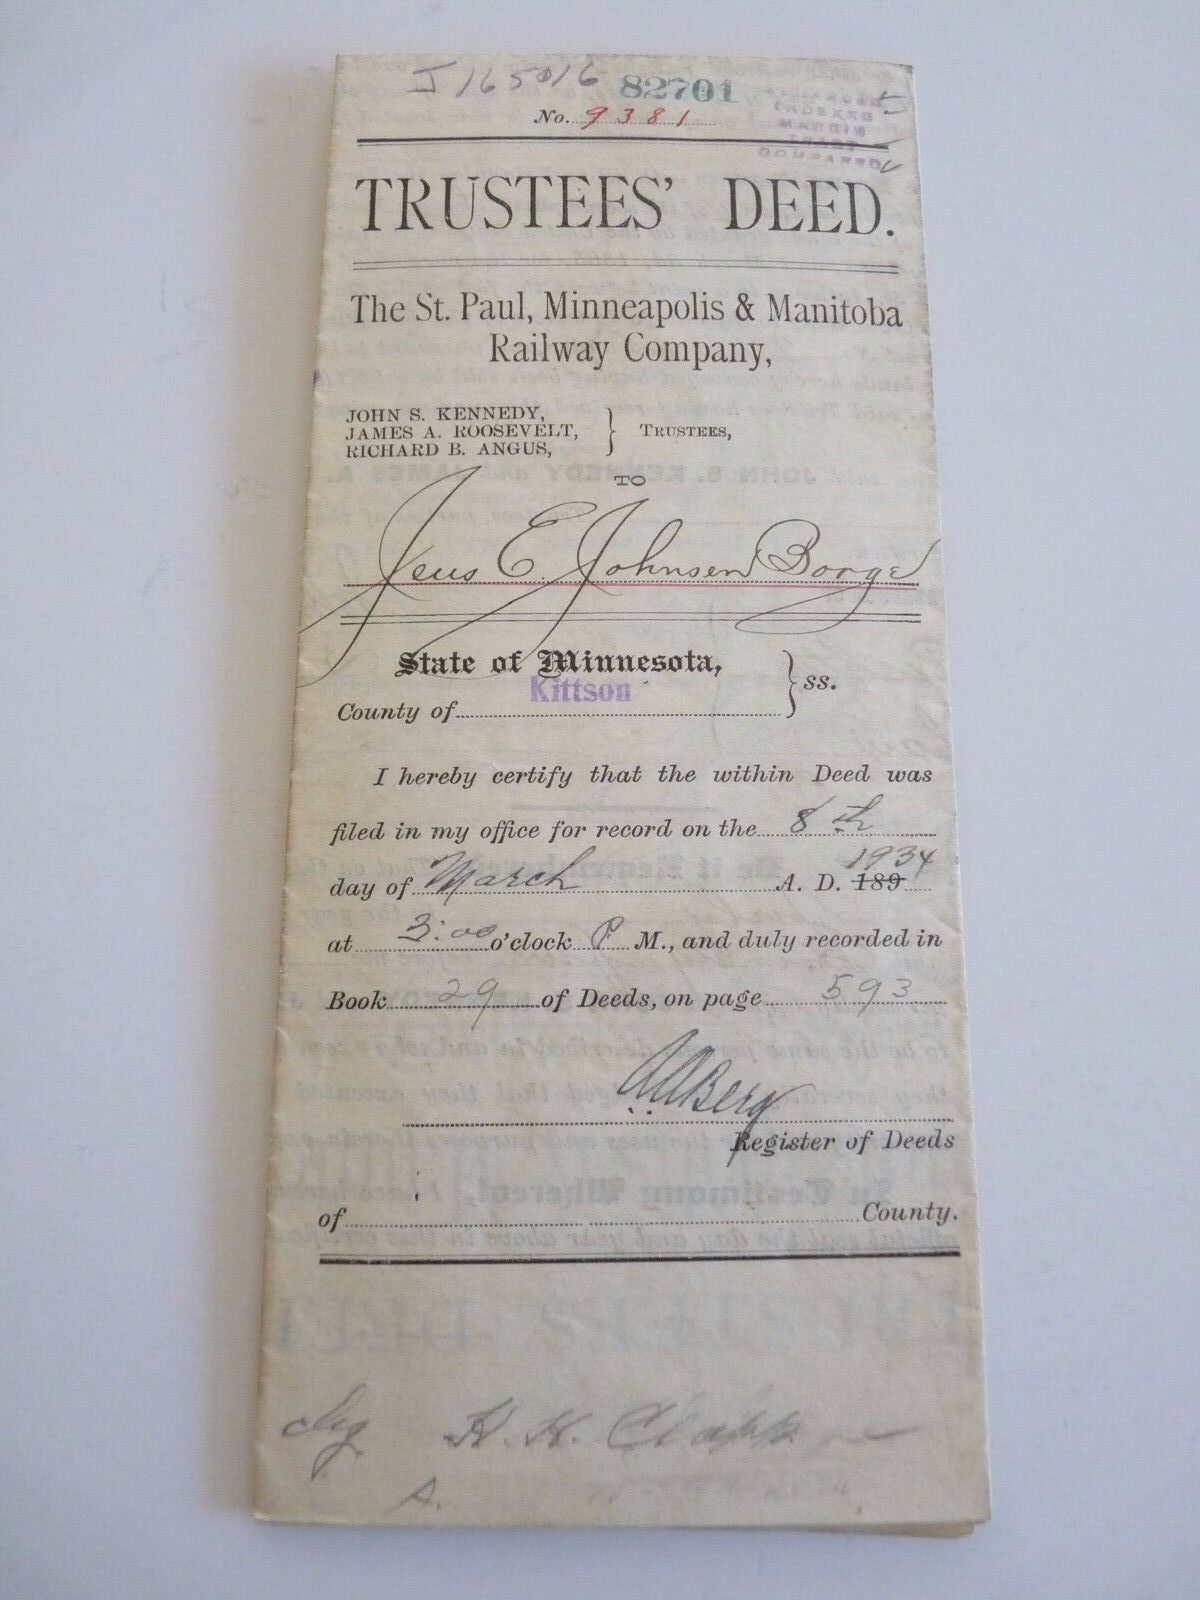 J 165016 82701
No. 9381
INDEXED
MARGIN
COMPARED
TRUSTEES' DEED.
The St. Paul, Minneapolis & Manitoba
Railway Company,
JOHN S. KENNEDY,
JAMES A. ROOSEVELT, } TRUSTEES,
RICHARD B. ANGUS,
TO
Jens E. Johnsen Borge
State of Minnesota, } ss.
Kittson
County of
I hereby certify that the within Deed was
filed in my office for record on the 8th
1934
day of March A. D. 189
at 3:00 o'clock P. M., and duly recorded in
Book 29 of Deeds, on page 593
Berg
Register of Deeds
of County.
H. K. Clapp
A.